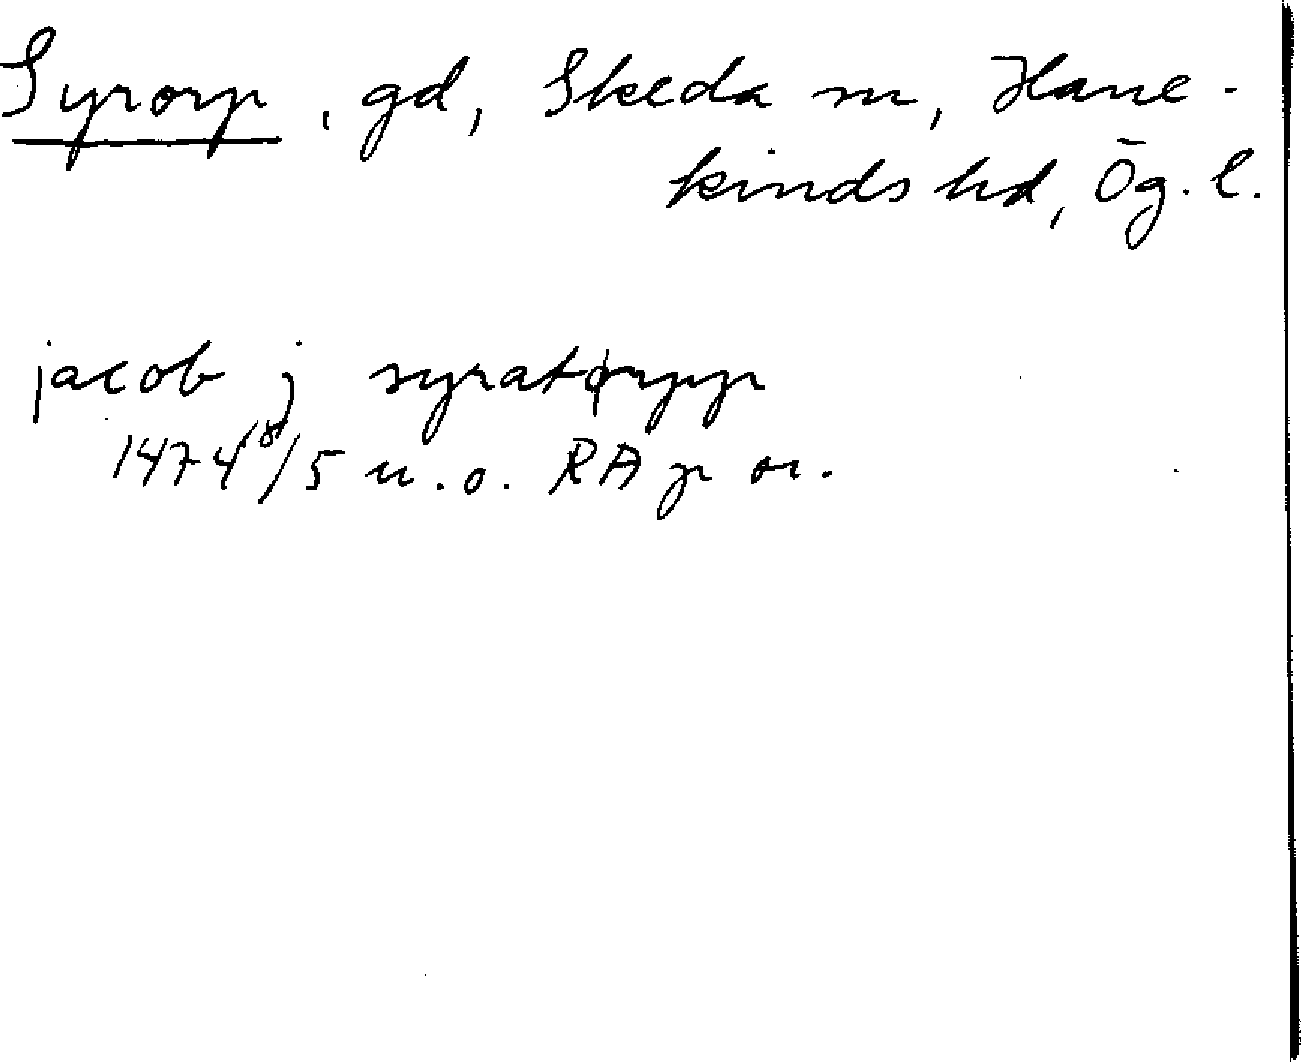 Syrorp, gd, Skeda sn, Hane-
kinds hd, Ög. l.
jacob j syratørpp
1474 18/5 u.o. RA p or.